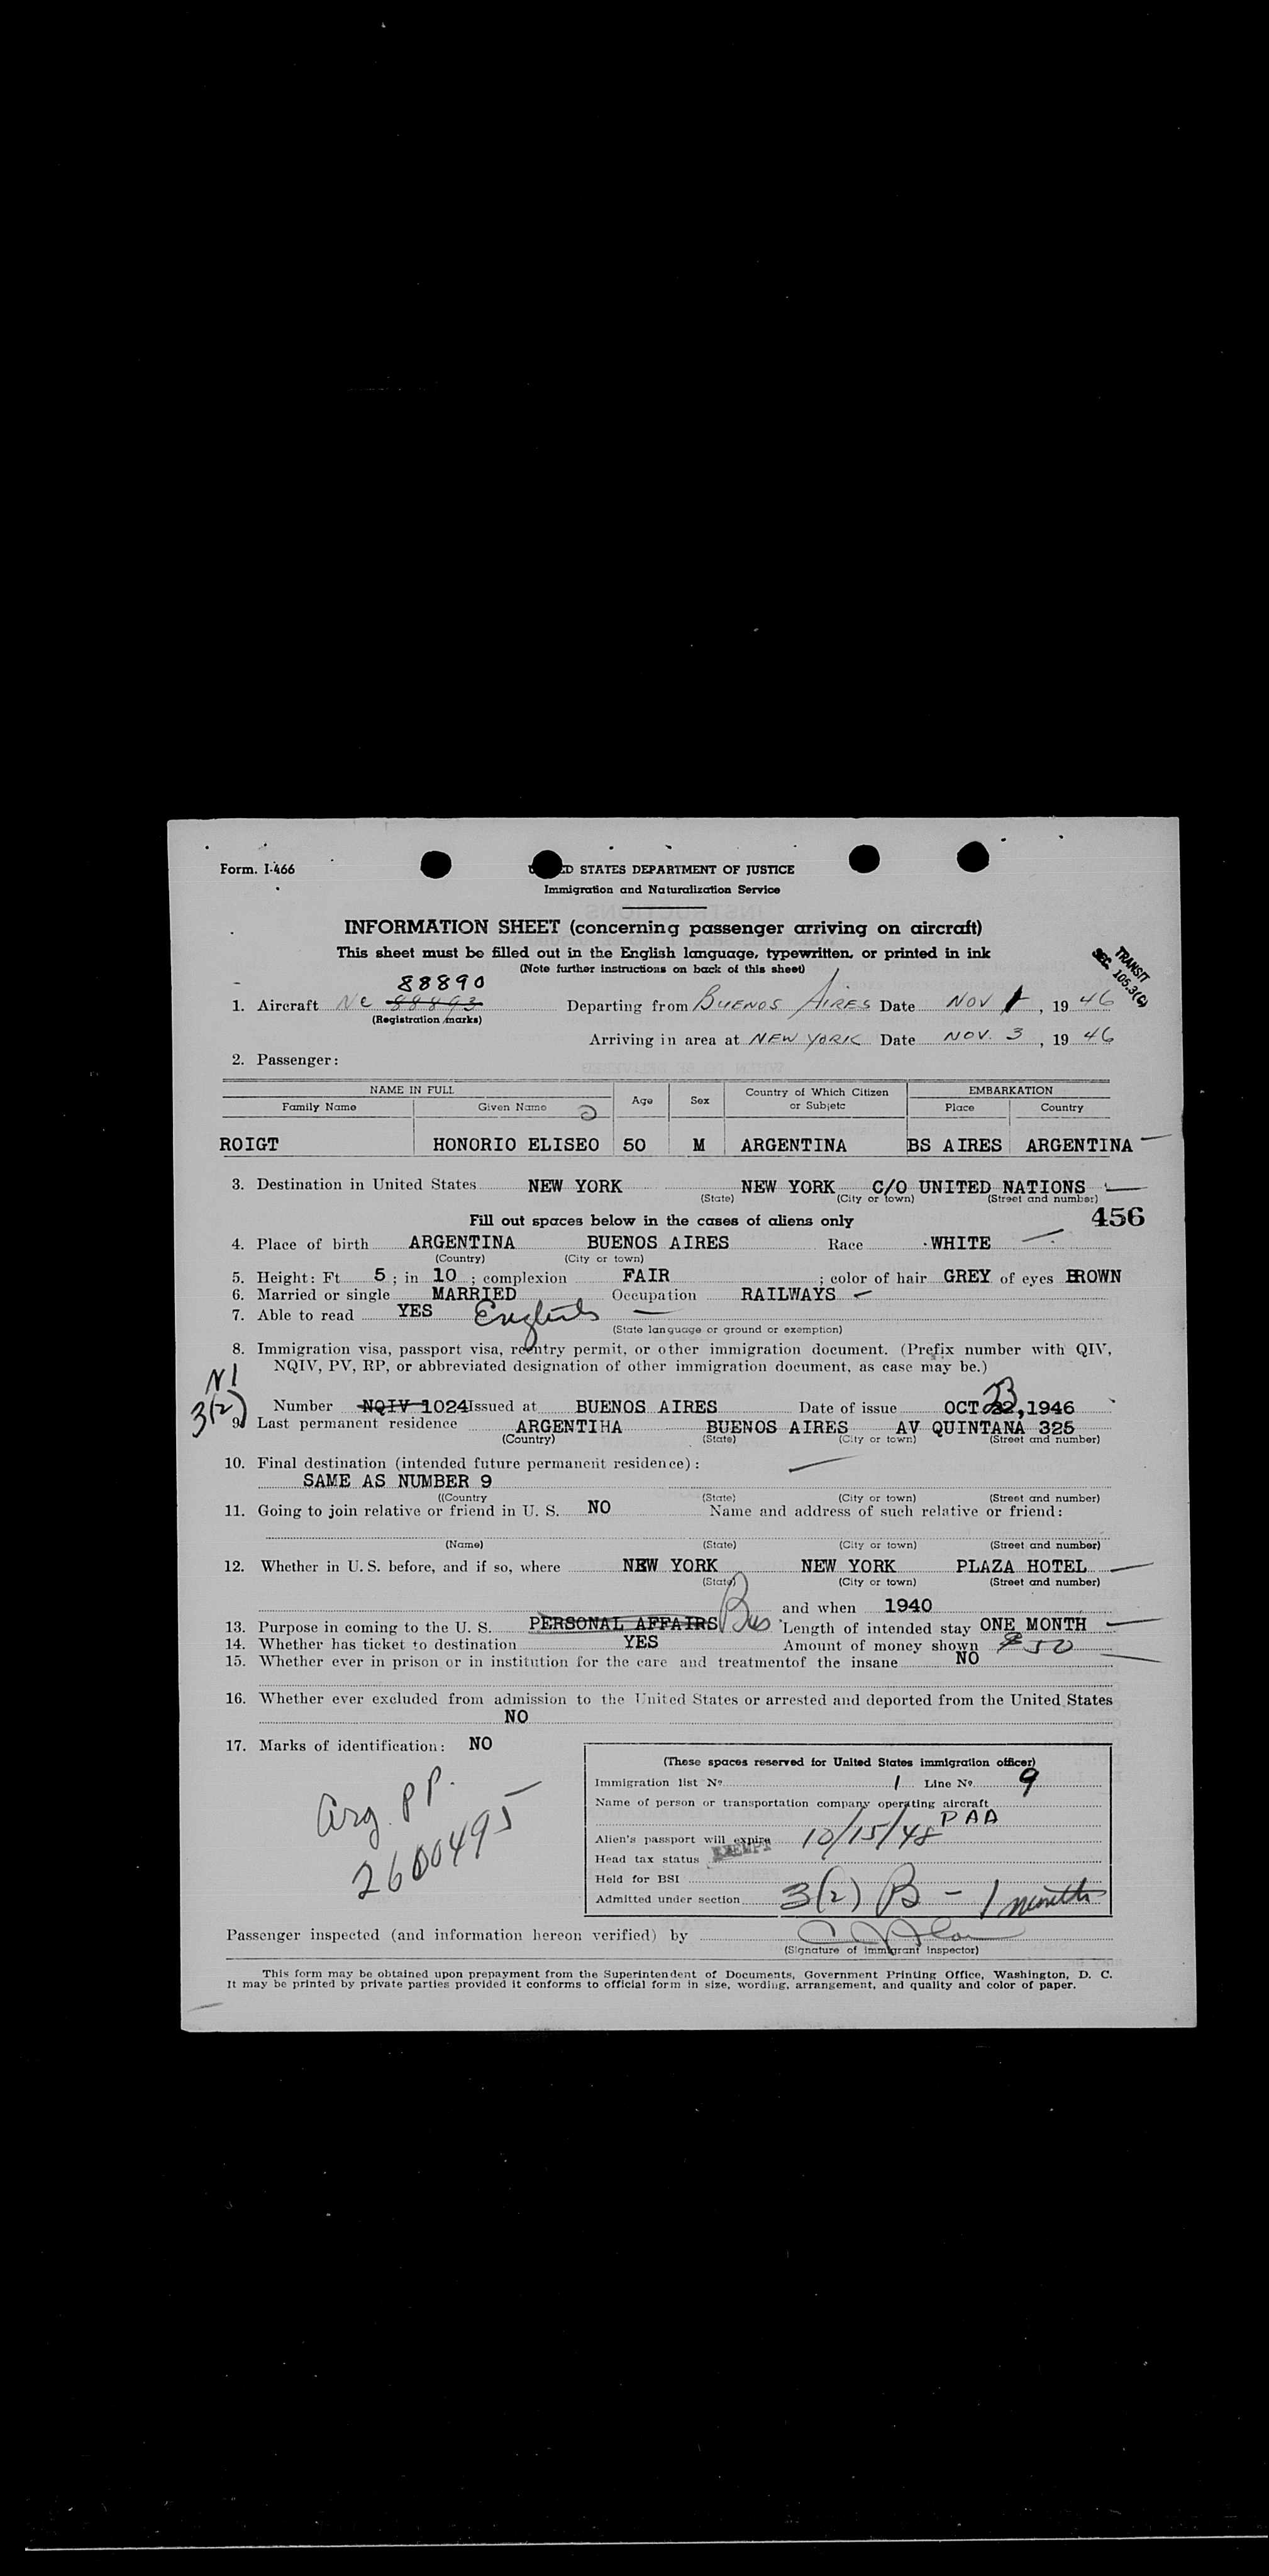 Form. I-466
ED STATES DEPARTMENT OF JUSTICE
Immigration and Naturalization Service
INFORMATION SHEET (concerning passenger arriving on aircraft)
This sheet must be filled out in the English language, typewritten, or printed in ink
(Note further instructions on back of this sheet)
TRANSIT
SEC. 105.3(C)
88890
1. Aircraft Nc 88893 Departing from BUENOS AIRES Date NOV 1, 1946
(Registration marks)
Arriving in area at NEW YORK Date NOV. 3, 1946
2. Passenger:
NAME IN FULL Age Sex Country of Which Citizen or Subjetc EMBARKATION
Family Name Given Name Place Country
ROIGT HONORIO ELISEO 50 M ARGENTINA BS AIRES ARGENTINA
3. Destination in United States NEW YORK NEW YORK C/O UNITED NATIONS
(State) (City or town) (Street and number)
456
Fill out spaces below in the cases of aliens only
4. Place of birth ARGENTINA BUENOS AIRES Race WHITE
(Country) (City or town)
5. Height: Ft 5; in 10; complexion FAIR; color of hair GREY of eyes BROWN
6. Married or single MARRIED Occupation RAILWAYS
7. Able to read YES English
(State language or ground or exemption)
8. Immigration visa, passport visa, reentry permit, or other immigration document. (Prefix number with QIV,
NQIV, PV, RP, or abbreviated designation of other immigration document, as case may be.)
N1
3(2)
Number NQIV 1024 Issued at BUENOS AIRES Date of issue OCT 22, 1946
23
9. Last permanent residence ARGENTIHA BUENOS AIRES AV QUINTANA 325
(Country) (State) (City or town) (Street and number)
10. Final destination (intended future permanent residence):
SAME AS NUMBER 9
((Country (State) (City or town) (Street and number)
11. Going to join relative or friend in U. S. NO Name and address of such relative or friend:
(Name) (State) (City or town) (Street and number)
12. Whether in U. S. before, and if so, where NEW YORK NEW YORK PLAZA HOTEL
(State) (City or town) (Street and number)
and when 1940
13. Purpose in coming to the U. S. PERSONAL AFFAIRS Bus Length of intended stay ONE MONTH
14. Whether has ticket to destination YES Amount of money shown $50
15. Whether ever in prison or in institution for the care and treatmentof the insane NO
16. Whether ever excluded from admission to the United States or arrested and deported from the United States
NO
17. Marks of identification: NO
Arg. PP.
2600495
(These spaces reserved for United States immigration officer)
Immigration list No. 1 Line No. 9
Name of person or transportation company operating aircraft
PAA
Alien's passport will expire 10/15/48
Head tax status EXEMPT
Held for BSI
Admitted under section 3(2) B - 1 month
Passenger inspected (and information hereon verified) by
(Signature of immigrant inspector)
This form may be obtained upon prepayment from the Superintendent of Documents, Government Printing Office, Washington, D. C.
It may be printed by private parties provided it conforms to official form in size, wording, arrangement, and quality and color of paper.